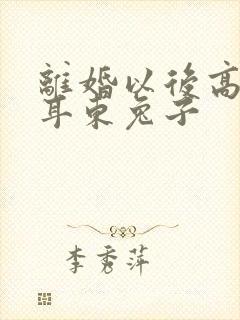 離婚以後高
耳東兔子
李秀萍